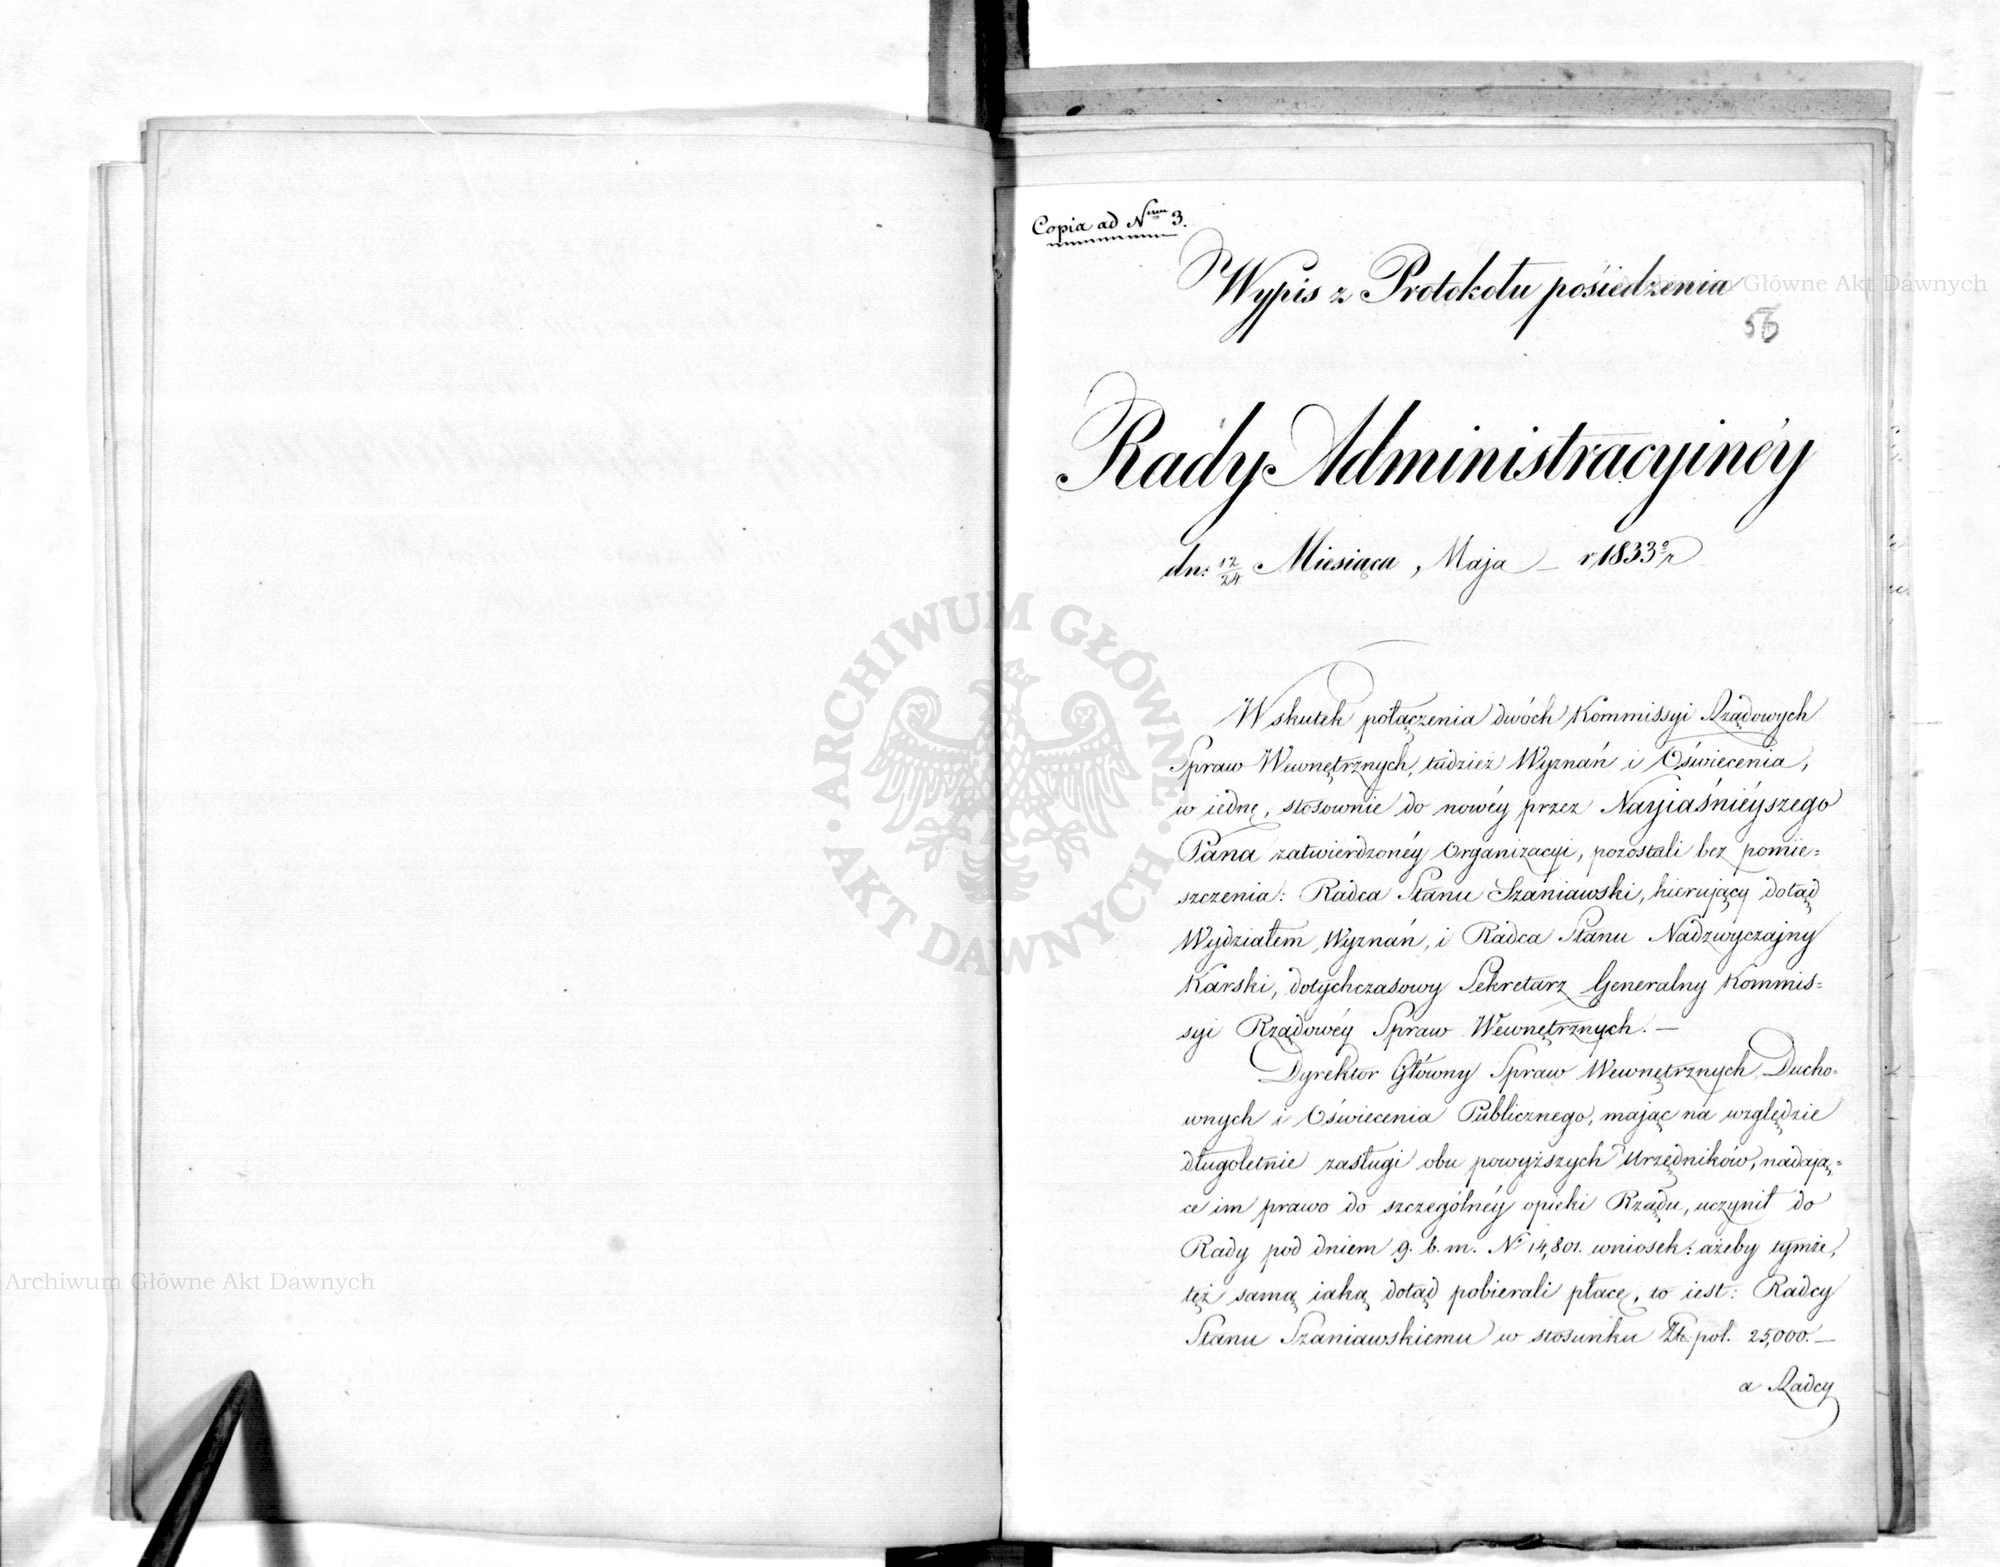 Copia ad Nrum 3.
Wypis z Protokołu posiedzenia
56
Rady Administracyinéy
dn: 12/24 Miesiąca, Maja – r 1833 r
W skutek połączenia dwóch Kommissyi Rządowych
Spraw Wewnętrznych, tudzież Wyznań i Oświecenia,
w iednę, stosownie do nowéy przez Nayiaśniéyszego
Pana zatwierdzonéy Organizacyi, pozostali bez pomie=
szczenia: Radca Stanu Szaniawski, kierujący dotąd
Wydziałem Wyznań, i Radca Stanu Nadzwyczajny
Karski, dotychczasowy Sekretarz Generalny Kommis=
syi Rządowéy Spraw Wewnętrznych. –
Dyrektor Główny Spraw Wewnętrznych Ducho=
wnych i Oświecenia Publicznego, mając na względzie
długoletnie zasługi obu powyższych Urzędników, nadają=
ce im prawo do szczególnéy opieki Rządu, uczynił do
Rady pod dniem 9. b. m. No 14,801. wniosek: ażeby tymże,
tęż samą iaką dotąd pobierali płacę, to iest: Radcy
Stanu Szaniawskiemu w stosunku Zł: pol. 25,000. –
a Radcy
ARCHIWUM GŁÓWNE AKT DAWNYCH
Archiwum Główne Akt Dawnych
Archiwum Główne Akt Dawnych